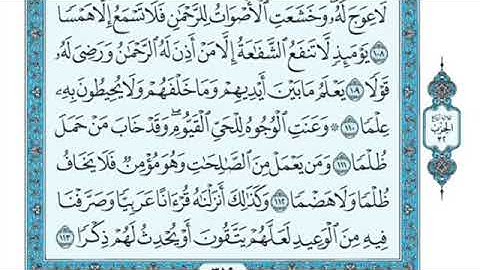 لَا عِوَجَ لَهُۥ وَخَشَعَتِ ٱلْأَصْوَاتُ لِلرَّحْمَٰنِ فَلَا تَسْمَعُ إِلَّا هَمْسًا
١٠٨ يَوْمَئِذٍ لَّا تَنفَعُ ٱلشَّفَٰعَةُ إِلَّا مَنْ أَذِنَ لَهُ ٱلرَّحْمَٰنُ وَرَضِىَ لَهُۥ
قَوْلًا ١٠٩ يَعْلَمُ مَا بَيْنَ أَيْدِيهِمْ وَمَا خَلْفَهُمْ وَلَا يُحِيطُونَ بِهِۦ
عِلْمًا ١١٠ ۞ وَعَنَتِ ٱلْوُجُوهُ لِلْحَىِّ ٱلْقَيُّومِ ۖ وَقَدْ خَابَ مَنْ حَمَلَ
ظُلْمًا ١١١ وَمَن يَعْمَلْ مِنَ ٱلصَّٰلِحَٰتِ وَهُوَ مُؤْمِنٌ فَلَا يَخَافُ
ظُلْمًا وَلَا هَضْمًا ١١٢ وَكَذَٰلِكَ أَنزَلْنَٰهُ قُرْءَانًا عَرَبِيًّا وَصَرَّفْنَا
فِيهِ مِنَ ٱلْوَعِيدِ لَعَلَّهُمْ يَتَّقُونَ أَوْ يُحْدِثُ لَهُمْ ذِكْرًا ١١٣
الحزب
٣٢
٣١٩